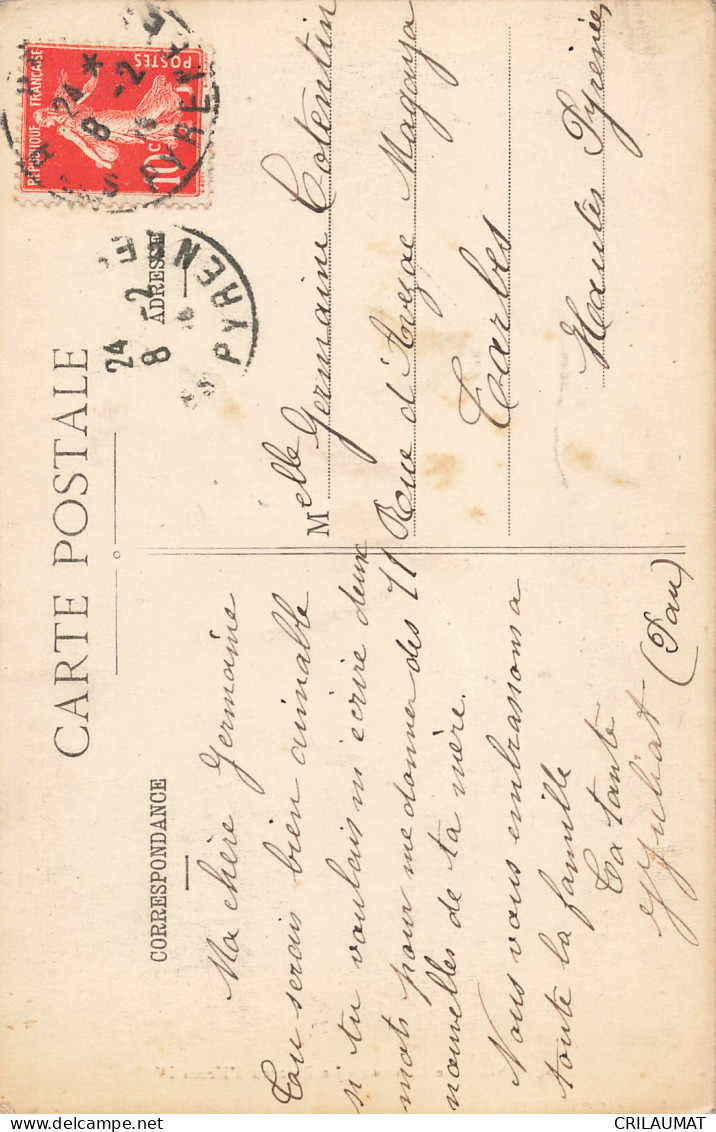 CARTE POSTALE
CORRESPONDANCE
ADRESSE
REPUBLIQUE FRANÇAISE
POSTES
10c
24 *
8 -2
PYREN
24
8 -2
PYREN
Ma chère Germaine
Tou serais bien aimable
si tu voulais m'écrire deux
mots pour me donner des
nouvelles de ta mère.
Nous vous embrassons a
toute la famille
Ta tante
(Pau)
Melle Germaine Cotentin
11 Rue d'Avezac Magaya
Tarbes
Hautes Pyrénées
CRILAUMAT